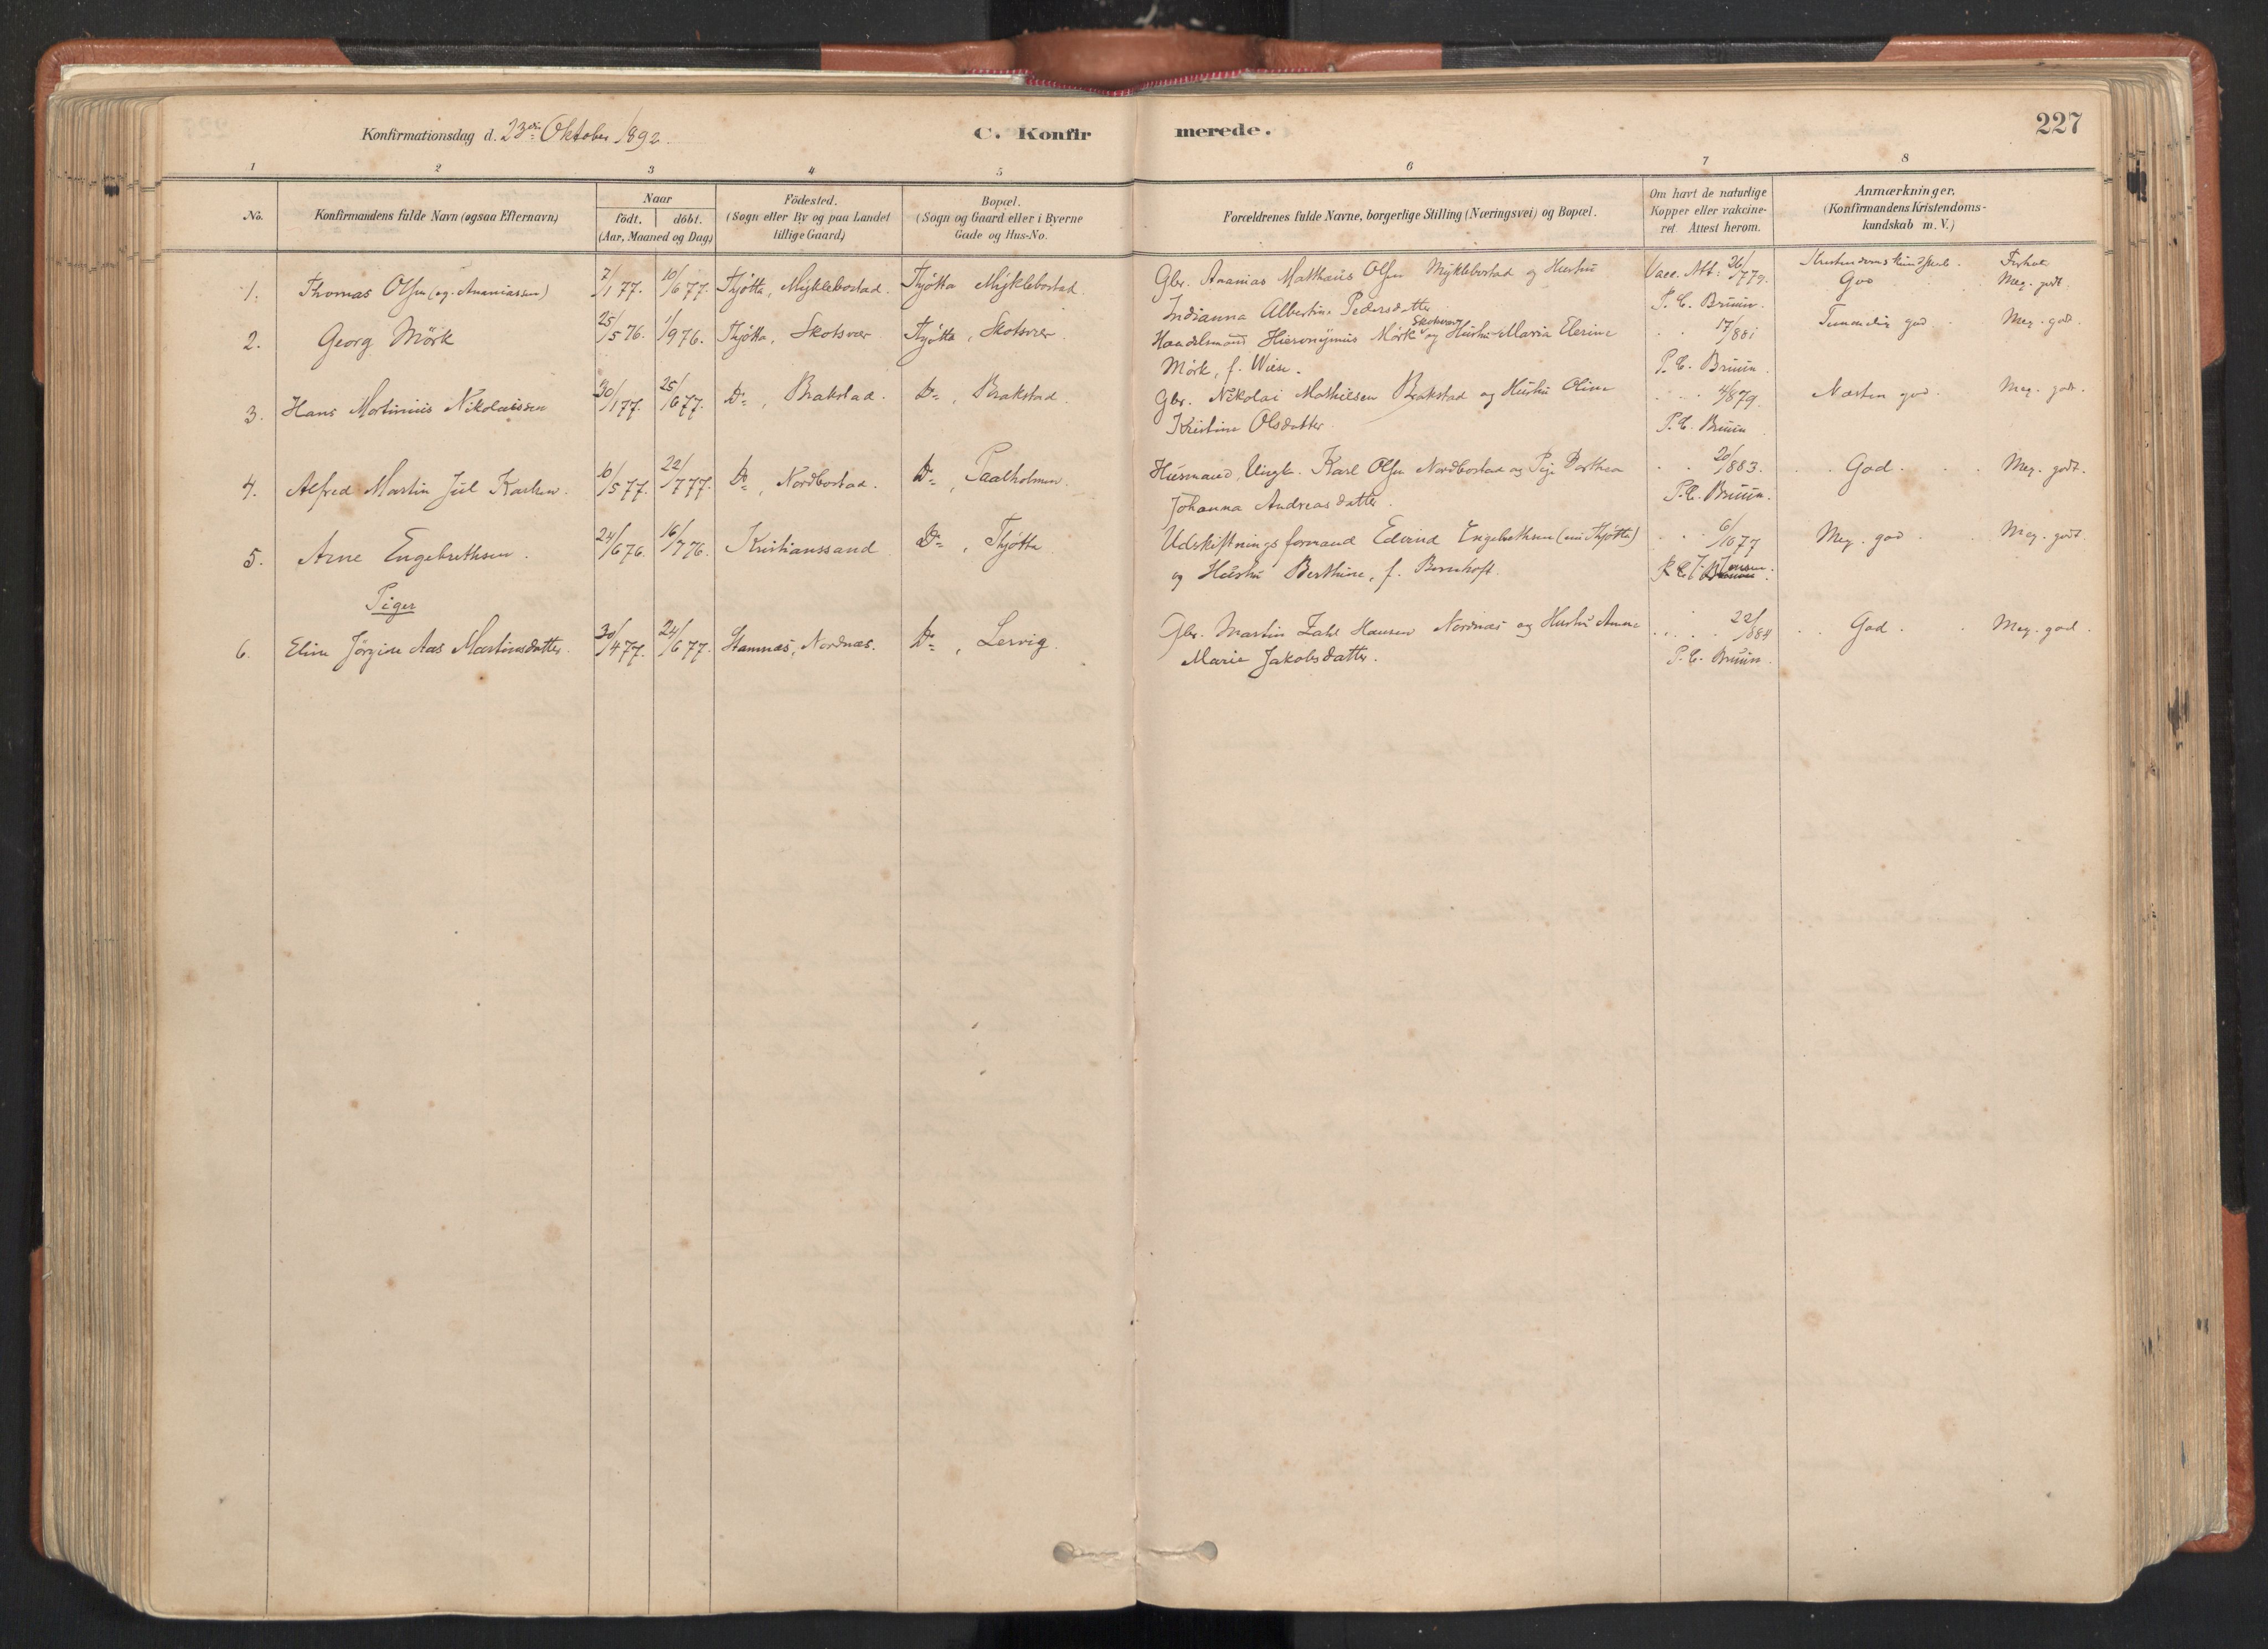 Konfirmationsdag d. 23de Oktober 1892.
C. Konfirmerede.
227
1 2 3 4 5 6 7 8
No.
Konfirmandens fulde Navn (ogsaa Efternavn)
Naar
födt. döbt.
(Aar, Maaned og Dag)
Födested.
(Sogn eller By og paa Landet
tillige Gaard)
Bopæl.
(Sogn og Gaard eller i Byerne
Gade og Hus-No.
Forældrenes fulde Navne, borgerlige Stilling (Næringsvei) og Bopæl.
Om havt de naturlige
Kopper eller vakcine-
ret. Attest herom.
Anmærkninger.
(Konfirmandens Kristendoms-
kundskab m. V.)
1. Thomas Olsen (og. Ananiassen) 7/1 77. 10/6 77. Thjötta, Myklebostad. Thjötta Myklebostad. Gbr. Ananias Matthæus Olsen Myklebostad og Hustru Vacc. Att: 26/7 79. Kristendomskundskab. Forhold
Indianna Albertine Pedersdatter P. C. Bruun. God Meg. godt.
2. Georg Mörk 25/5 76. 1/9 76. Thjötta, Skotsvær Thjötta, Skotsvær. Handelsmand Hieronymus Mörk Skotsvær og Hustru Maria Elerine 17/8 81 Temmelig god. Meg. god.
Mörk, f. Wiese. P. C. Bruun.
3. Hans Martinius Nikolaissen 30/1 77. 25/6 77. Do, Brakstad. Do, Brakstad. Gbr. Nikolai Mathiesen Brakstad og Hustru Oline 4/8 79. Næsten god. Meg. godt.
Kristine Olsdatter. P. C. Bruun
4. Alfred Martin Jul Karlsen. 10/5 77. 22/7 77. Do, Nordbostad. Do, Paalholmen. Husmand, Ungk. Karl Olsen Nordbostad og Pige Dorthea 20/8 83. God. Meg. godt.
Johanna Andreasdatter. P. C. Bruun.
5. Arne Engebrethsen. 24/6 76. 16/7 76. Kristianssand Do, Thjötta Udskiftningsformand Edvind Engebrethsen (nu Thjötta) 6/10 77 Meg. god. Meg. godt
og Hustru Berthine, f. Bernhoft.
Piger
6. Eline Jörgine Aas Martinsdatter. 30/4 77. 24/6 77. Stamnæs, Nordnæs. Do, Lervig. Gbr. Martin Zahl Hansen Nordnæs og Hustru Anne 22/8 84 God. Meg. god.
Marie Jakobsdatter. P. C. Bruun.